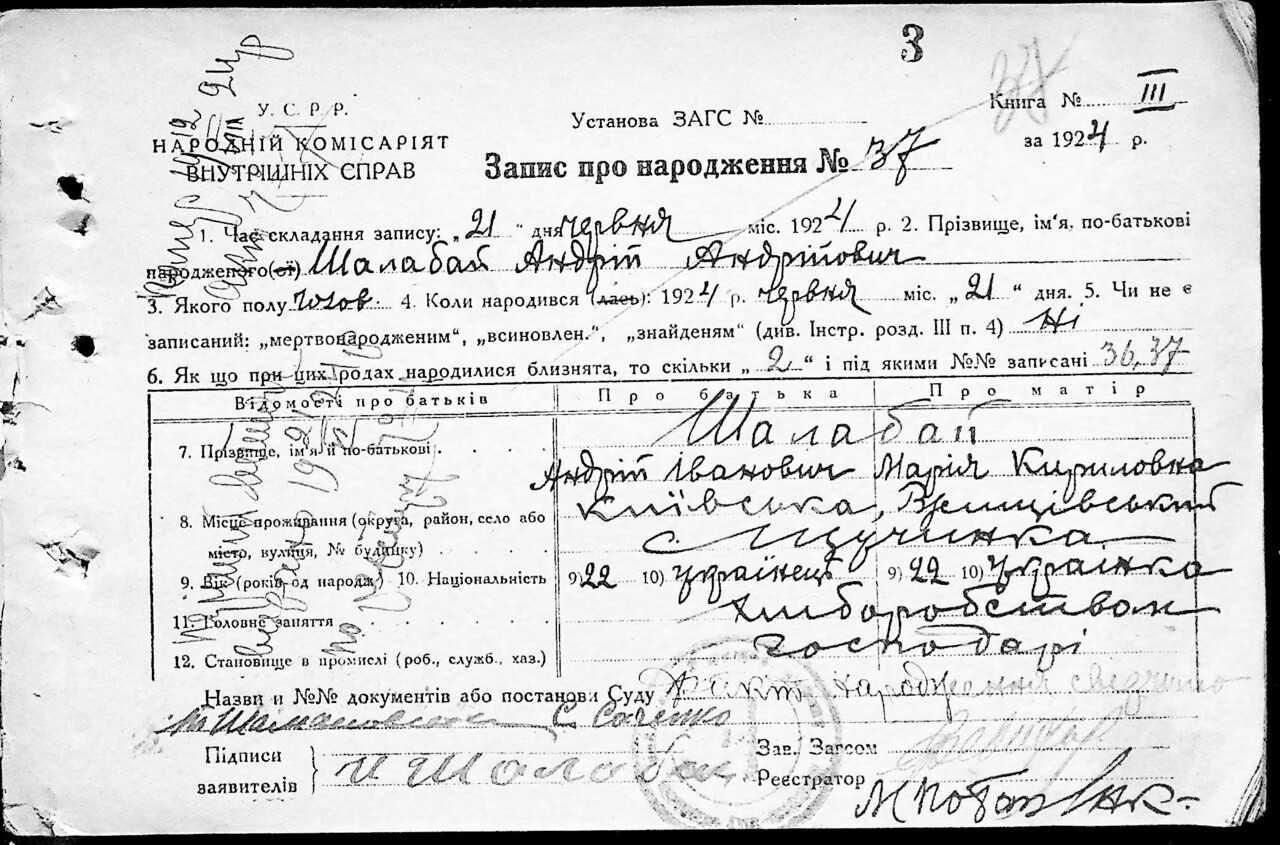 3
37
У. С. Р. Р.
НАРОДНІЙ КОМІСАРІЯТ
ВНУТРІШНІХ СПРАВ
Установа ЗАГС №
Запис про народження № 37
Книга № III
за 1924 р.
1. Час складання запису: „21“ дня червня міс. 1924 р. 2. Прізвище, ім‘я, по-батькові
народженого(ої) Шалабай Андрій Андрійович
3. Якого полу чолов. 4. Коли народився (лась): 1924 р. червня міс. „21“ дня. 5. Чи не є
записаний: „мертвонародженим“, „всиновлен.“, „знайденям“ (див. Інстр. розд. III п. 4) Ні
6. Як що при цих родах народилися близнята, то скільки „2“ і під якими №№ записані 36, 37
Відомості про батьків Про батька Про матір
7. Прізвище, ім‘я й по-батькові Шалабай
Андрій Іванович Марія Кириловна
8. Місце проживання (округа, район, село або Київська,
місто, вулиця, № будинку) с. Щучинка
9. Вік (років од народж) 10. Національність 9) 22 10) Українець 9) 22 10) Українка
11. Головне заняття Хліборобством
12. Становище в промислі (роб., служб., хаз.) господарі
Назви и №№ документів або постанови Суду Факт народження
Підписи
заявителів
И Шалабай
Зав. Загсом
Реєстратор